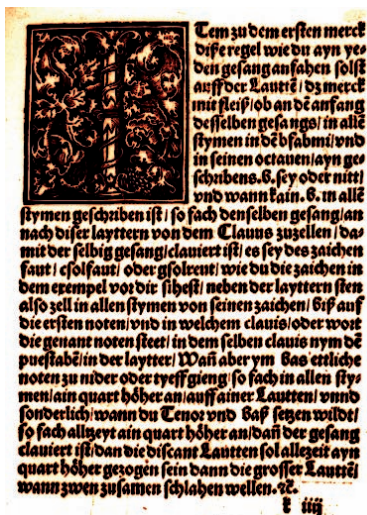 Item zu dem ersten merck
diße regel wie du ayn ye⸗
den gesang anfahen solst
auff der Lautrē / dz merck
mit fleiß / ob an dē anfang
desselben gesangs / in allē
stymen in dē bfabmi / vnd
in seinen octauen / ayn ge⸗
schribens .b. sey oder nitt /
vnd wann kain .b. in allē
stymen geschriben ist / so fach den selben gesang / an
nach diser layttern von dem Clauus zuzellen / da⸗
mit der selbig gesang / clauiert ist / es sey des zaichen
faut / csolfaut / oder gsolreut / wie du die zaichen in
dem exempel vor dir sihest / neben der layttern sten
also zell in allen stymen von seinen zaichen / biß auf
die ersten noten / vnd in welchem clauis / oder wort
die genant noten steet / in dem selben clauis nym dē
puestabē / in der laytter / Wañ aber ym Bas ettliche
noten zu nider oder tyeff gieng / so fach in allen sty⸗
men / ain quart höher an / auff ainer Lautten / vnnd
sonderlich / wann du Tenor vnd Baß setzen wildt /
so fach alltzeyt ain quart höher an / dañ der gesang
clauiert ist / dan die discant Lautten sol allezeit ayn
quart höher gezogen sein dann die grosser Lauttē /
wann zwen zusamen schlahen wellen .ꝛc.
k iiij